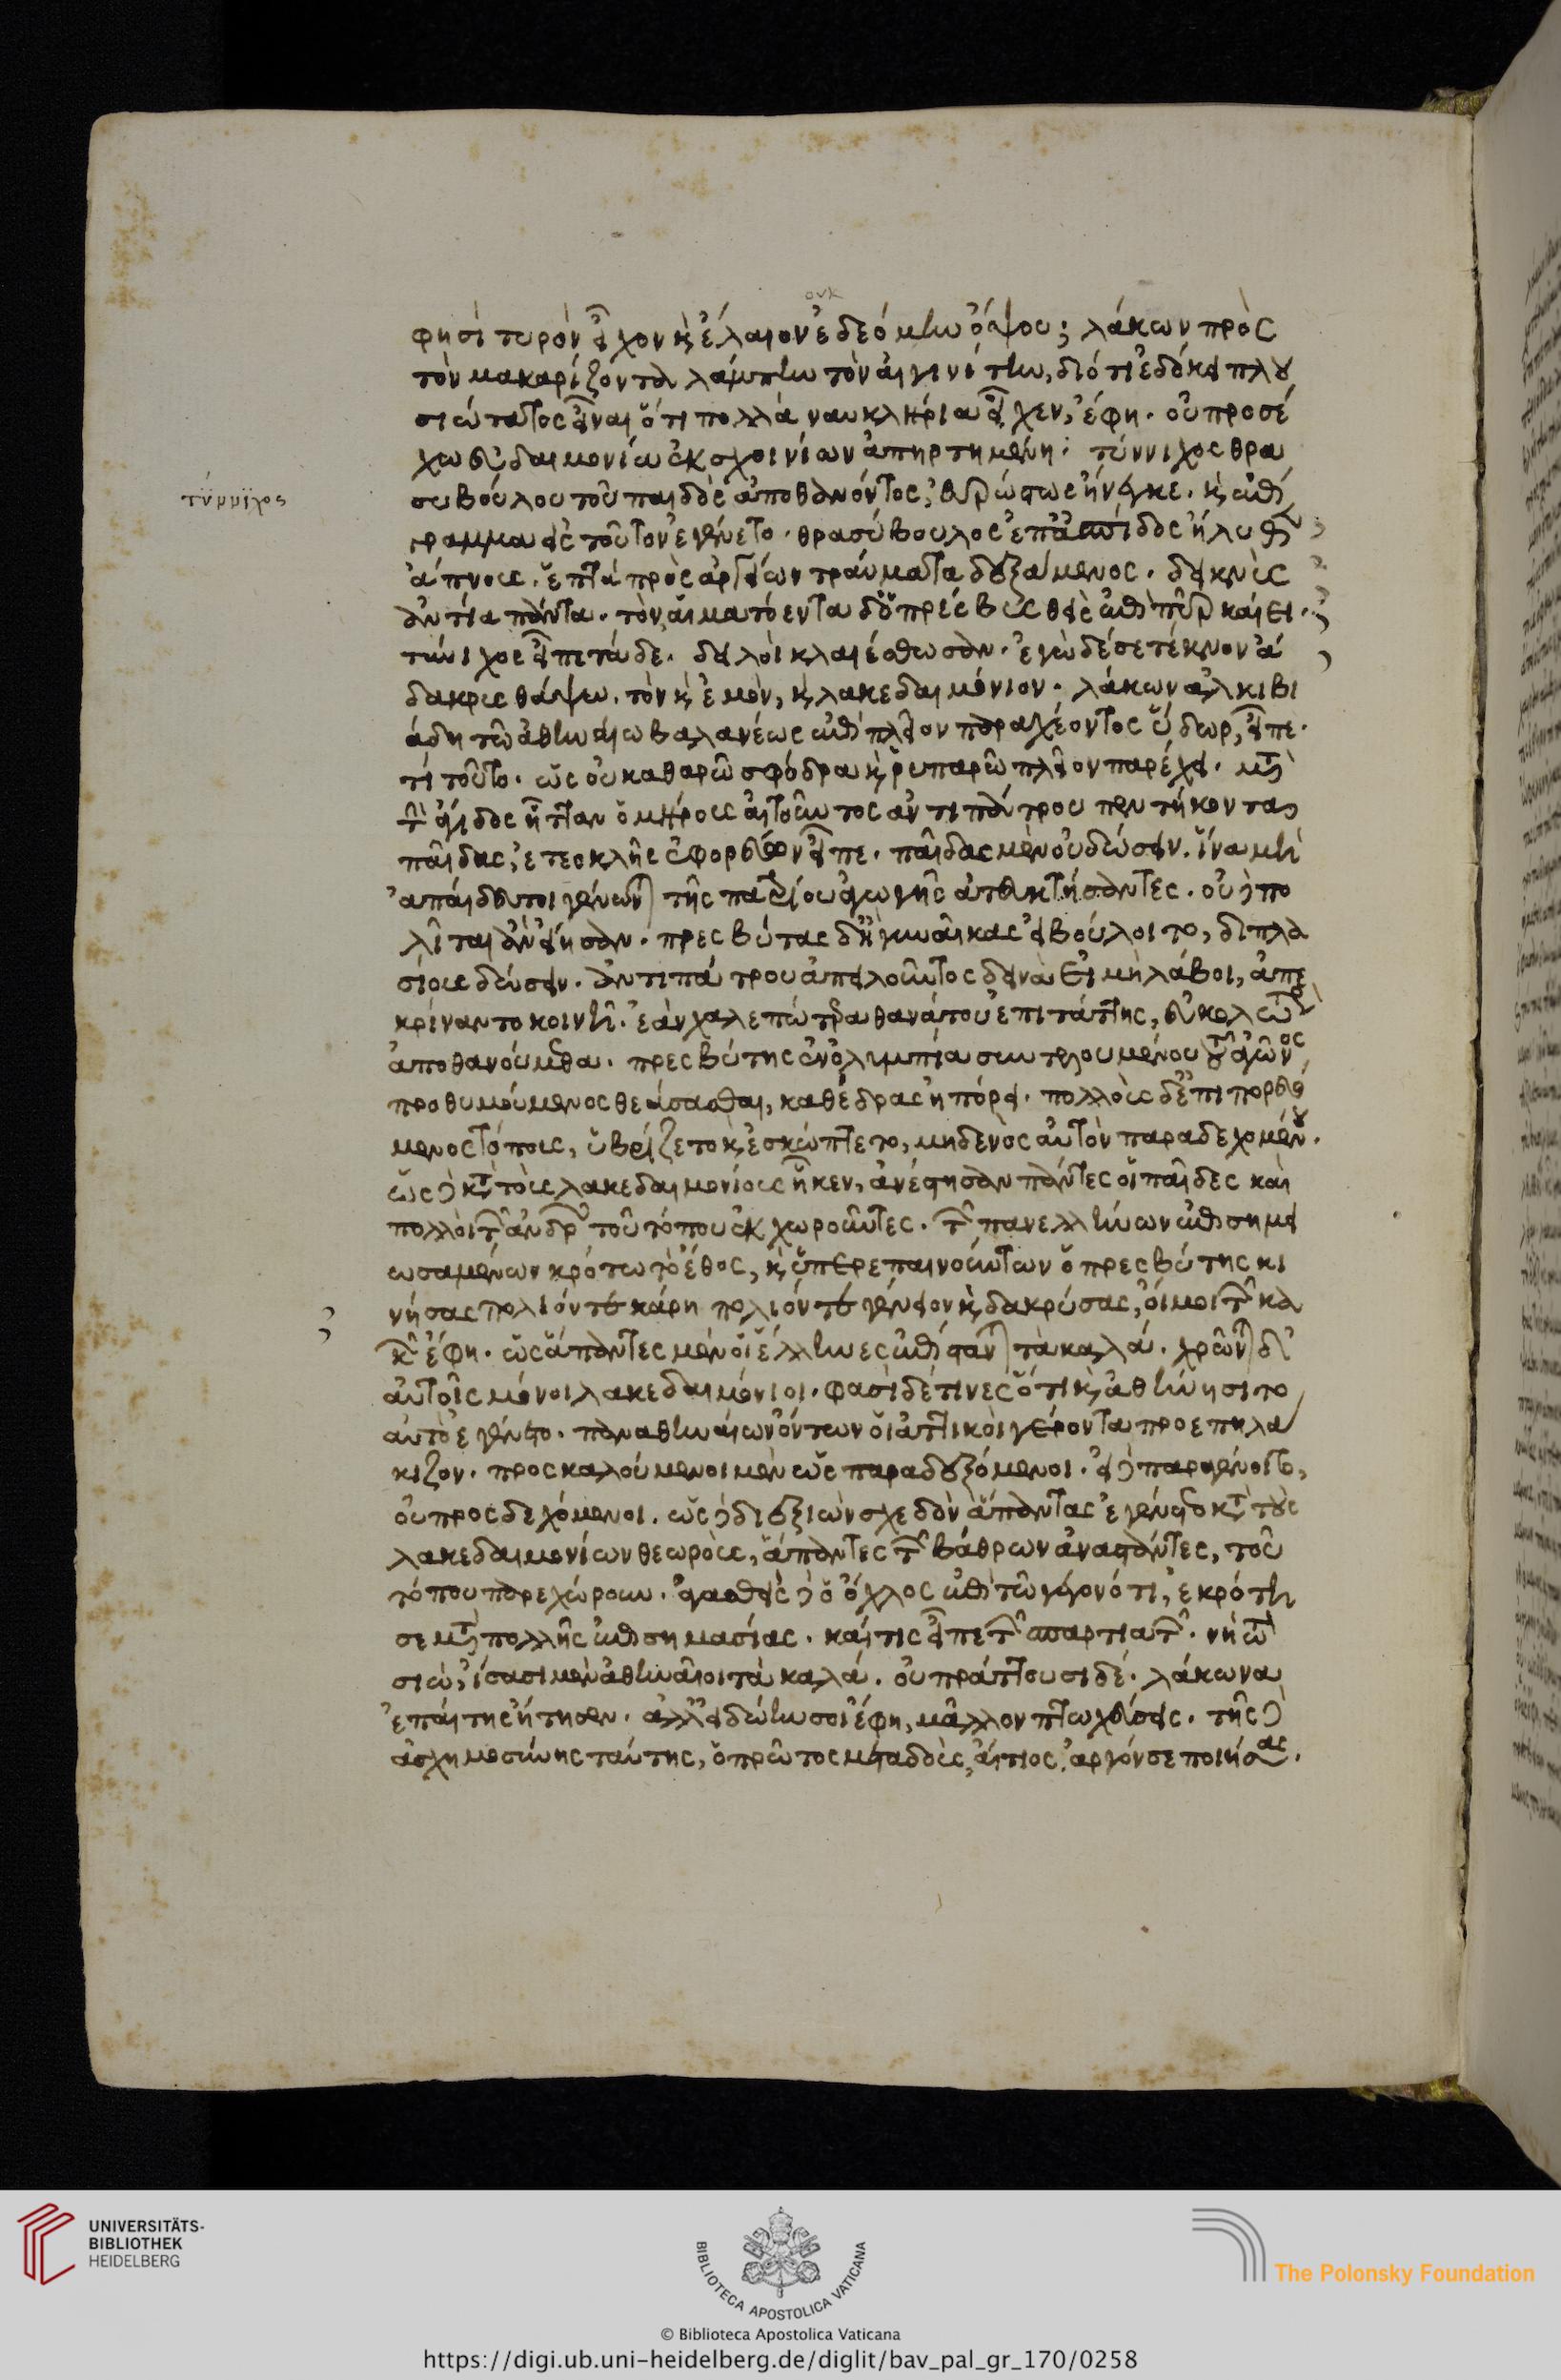 ουκ
φησὶ τυρὸν εἶχον κ̀ ἔλαιον ἐδεόμην ὄψου; λάκων πρὸς
τὸν μακαρίζοντα λάμπην τὸν αἰγινίτην, διότι ἐδόκει πλου
σιώτατος εἶναι ὅτι πολλὰ ναυκλήρια εἶχεν, ἔφη. οὐ προσέ
χω εὐδαιμονία ἐκ σχοινίων ἀπηρτημένη· τύννιχος θρα
τύννιχος
συβούλου τοῦ παιδὸς ἀποθανόντος, ἐρρώστως ἤνεγκε. κ̀ ἐπί
γραμμα εἰς τοῦτον ἐγένετο. θρασύβουλος ἐπ' ἀσπίδος ἤλυθεν
ἄπνους. ἑπτὰ πρὸς ἀργείων τραύματα δεξάμενος. δεικνὺς
ἀντία πάντα. τὸν αἱματόεντα δ' ὁ πρέσβυς θεὶς ἐπὶ πῦρ καίει.
τύνιχος εἶπε τάδε. δειλοὶ κλαιέσθωσαν. ἐγὼ δέ σε τέκνον ἀ
δακρυς θάψω. τὸν κ̀ ἐμὸν, κ̀ λακεδαιμόνιον. λάκων ἀλκιβι
άδη τῶ ἀθηναίω βαλανέως ἐπὶ πλεῖον παραχέοντος ὕδωρ, εἶπε.
τί τοῦτο. ὡς οὐ καθαρῶ σφόδρα κ̀ ῥυπαρῶ πλεῖον παρέχει. μετὰ
τὴν ἄγιδος ἧτταν ὁμήρους αἰτοῦντος ἀντιπάτρου πεντήκοντα
παῖδας, ἐτεοκλῆς ἐφορεύων εἶπε. παῖδας μὲν οὐ δώσειν. ἵνα μὴ
ἀπαίδευτοι γένωνται τῆς πατρίου ἀγωγῆς ἀτακτήσαντες. οὐδὲ πο
λῖται ἂν εἴησαν. πρεσβύτας δὲ ἢ γυναῖκας εἰ βούλοιτο, διπλα
σίους δώσειν. ἀντιπάτρου ἀπειλοῦντος δεινὰ εἰ μὴ λάβοι, ἀπε
κρίναντο κοινῆ. ἐὰν χαλεπώτερα θανάτου ἐπιτάττης, εὐκολώτερον
ἀποθανούμεθα. πρεσβύτης ἐν ὀλυμπία συντελουμένου τοῦ ἀγῶνος
προθυμούμενος θεάσασθαι, καθέδρας ἠπόρει. πολλοὺς δ' ἐπιπορευό
μενος τόπους, ὑβρίζετο κ̀ ἐσκώπτετο, μηδενὸς αὐτὸν παραδεχομένου.
ὡς δὲ κατὰ τοὺς λακεδαιμονίους ἧκεν, ἀνέστησαν πάντες οἱ παῖδες καὶ
πολλοὶ τῶν ἀνδρῶν τοῦ τόπου ἐκχωροῦντες. τῶν πανελλήνων ἐπισημει
ωσαμένων κρότω τὸ ἔθος, κ̀ ὑπερεπαινούντων ὁ πρεσβύτης κι
νήσας πολιόν τε κάρη πολιόν τε γένειον κ̀ δακρύσας, οἴμοι τῶν κα
κῶν ἔφη. ὡς ἅπαντες μὲν οἱ ἕλληνες ἐπίστανται τὰ καλά. χρῶνται δ'
αὐτοῖς μόνοι λακεδαιμόνιοι. φασὶ δέ τινες ὅτι κ̀ ἀθήνησι το
αὐτὸ ἐγένετο. παναθηναίων ὄντων οἱ ἀττικοὶ γέροντα προεπηλά
κιζον. προσκαλούμενοι μὲν ὡς παραδεξόμενοι. εἰ δὲ παραγένοιτο,
οὐ προσδεχόμενοι. ὡς δὲ διεξιὼν σχεδὸν ἅπαντας ἐγένετο κατὰ τοὺς
λακεδαιμονίων θεωροὺς, ἅπαντες τῶν βάθρων ἀναστάντες, τοῦ
τόπου παρεχώρουν. ἀγασθεὶς δὲ ὁ ὄχλος ἐπὶ τῶ γεγονότι, ἐκρότη
σε μετὰ πολλῆς ἐπισημασίας. καί τις εἶπε τῶν σπαρτιατῶν. νὴ τὼ
σιὼ, ἴσασι μὲν ἀθηναῖοι τὰ καλά. οὐ πράττουσι δέ. λάκωνα
ἐπαίτης ἤτησεν. ἀλλ' εἰ δώην σοι ἔφη, μᾶλλον πτωχεύσεις. τῆς δὲ
ἀσχημοσύνης ταύτης, ὁ πρῶτος μεταδοὺς, αἴτιος, ἀργόν σε ποιήσας.
UNIVERSITÄTS-
BIBLIOTHEK
HEIDELBERG
BIBLIOTECA APOSTOLICA VATICANA
The Polonsky Foundation
© Biblioteca Apostolica Vaticana
https://digi.ub.uni-heidelberg.de/diglit/bav_pal_gr_170/0258